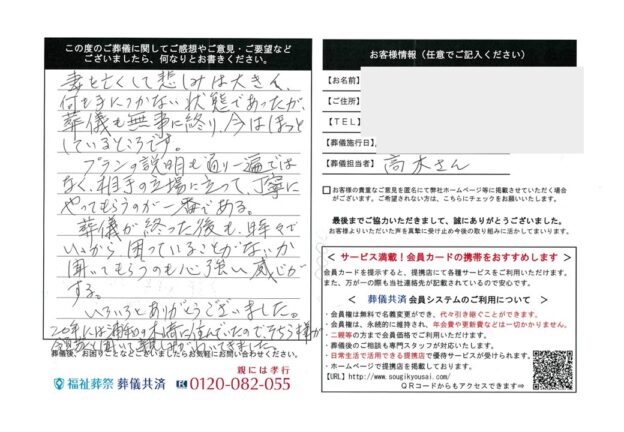 この度のご葬儀に関してご感想やご意見・ご要望など
ございましたら、何なりとお書きください。
妻を亡くして悲しみは大きく、
何も手につかない状態であったが、
葬儀も無事に終り、今はほっと
しているところです。
プランの説明も通り一遍では
なく、相手の立場に立って、丁寧に
やってもらうのが一番である。
葬儀が終った後も、
困っていることがないか
聞いてもらうのも心強い感じが
する。
いろいろとありがとうございました。
20年には浦和の
葬儀後、お困りごとなどございましたらお気軽にお問い合わせください。
親には孝行
福祉葬祭 葬儀共済 0120-082-055
お客様情報（任意でご記入ください）
【お名前】
【ご住所】
【TEL】
【葬儀施行日】
【葬儀担当者】 高木さん
□お客様の貴重なご意見を匿名にて弊社ホームページ等に掲載させていただく場合
がございます。ご希望されない方は、こちらにチェックをお願いします。
最後までご協力いただきまして、誠にありがとうございました。
お客様よりいただいた声を真摯に受け止め今後の取り組みに活かしてまいります。
＜ サービス満載！会員カードの携帯をおすすめします ＞
会員カードを提示すると、提携店にて各種サービスをご利用いただけます。
また、万が一の際も当社連絡先が記載されているので安心です。
＜ 葬儀共済 会員システムのご利用について ＞
・会員権は無料で名義変更ができ、代々引き継ぐことができます。
・会員権は、永続的に維持され、年会費や更新費などは一切かかりません。
・二親等の方まで会員価格でご利用いただけます。
・葬儀後のご相談も専門スタッフが対応いたします。
・日常生活で活用できる提携店で優待サービスが受けられます。
・ホームページで提携店を掲載しております。
【URL】http://www.sougikyousai.com/
QRコードからもアクセスできます⇒